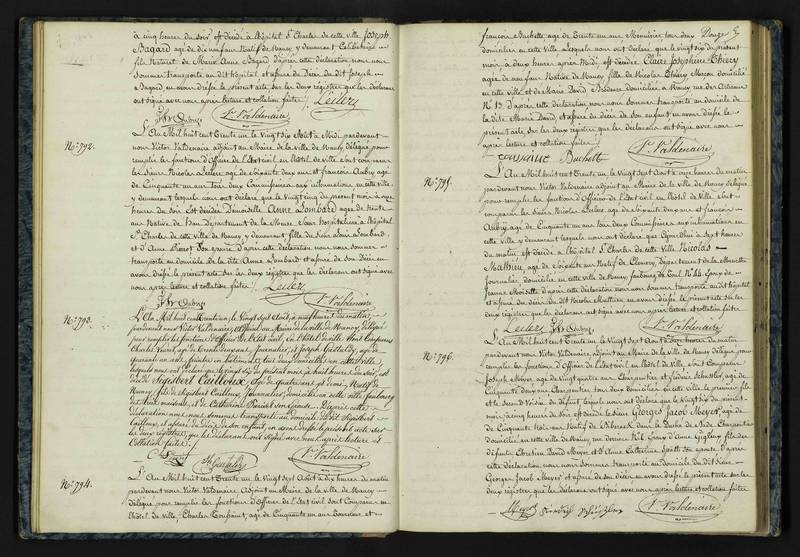 à cinq heures du soir est décédé à l'hôpital St Charles de cette ville Joseph
Bagard agé de dix neuf ans Natif de Nancy y demeurant Célibataire
fils Naturel de Marie Anne Bagard d'après cette déclaration nous nous
sommes transporté au dit hôpital et assuré du Décès du dit Joseph
Bagard en avons dressé le présent acte sur les deux registres que les déclarants
ont signé avec nous après lecture et collation faite
Leclerc
Aubry
Vr Valdenaire
No. 792.
L'An Mil huit cent Trente un le Vingt six Août à Midi pardevant
nous Victor Valdenaire adjoint au Maire de la ville de Nancy délégué pour
remplir les fonctions d'Officier de l'Etat civil en l'hôtel de Ville sont comparus
les Sieurs Nicolas Leclerc agé de soixante deux ans et françois Aubry agé
de Cinquante un ans tous deux Commissaires aux inhumations en cette ville
y demeurant lesquels nous ont déclaré que le Vingt cinq du présent mois à onze
heures du soir Est décédée Demoiselle Anne Lombard agée de Trente
ans Native de Han Département de la Meuse Sœur hospitalière à l'hôpital
St Charles de cette Ville de Nancy y demeurant fille de Louis Lombard
et d'Anne Pierrot son Epouse d'après cette déclaration nous nous sommes
transporté au domicile de la dite Anne Lombard et assuré de son Décès en
avons dressé le présent acte sur les deux registres que les déclarants ont signé avec
nous après lecture et collation faite
Leclerc
Aubry
Vr Valdenaire
No. 793.
L'An Mil huit cent trente un, le Vingt sept Août, à neuf heures du matin,
pardevant nous Victor Valdenaire, adjoint au Maire de la ville de Nancy, délégué
pour remplir les fonctions d'Officier de l'Etat civil, en l'hôtel de ville sont Comparus
Charles agé de trente deux ans, journalier, et Joseph agé de
quarante un ans, tous deux domiciliés en cette ville,
lesquels nous ont déclaré que le vingt six du présent mois à huit heures du soir, est
décédé Sigisbert Cailloux, agé de quatre ans et demi, Natif de
Nancy, fils de Sigisbert Cailloux, journalier, domicilié en cette ville faubourg
et de Catherine son Epouse. D'après cette
déclaration nous nous sommes transporté au domicile du dit Sigisbert
Cailloux, et assuré du décès de son enfant, en avons dressé le présent acte sur
les deux registres, que les déclarants ont signé avec nous, après lecture et
Collation faite.
Vr Valdenaire
No. 794.
L'An Mil huit cent Trente un le Vingt sept Août à dix heures du matin
pardevant nous Victor Valdenaire Adjoint au Maire de la ville de Nancy
délégué pour remplir les fonctions d'Officier de l'Etat civil sont Comparus en
l'hôtel de Ville, Charles Toussaint, agé de Cinquante un ans Tourneur et
françois Buchette agé de Trente un ans Menuisier tous deux
domiciliés en cette Ville Lesquels nous ont déclaré que le vingt six du présent
mois à deux heures après Midi est décédée Claire Joséphine Thiery
agée de neuf ans Native de Nancy, fille de Nicolas Thiery Maçon domicilié
en cette ville et de Marie David domiciliée à Nancy rue des Artisans
No 13. d'après cette déclaration nous nous sommes transporté au domicile de
la dite Marie David, et assuré du décès de son enfant en avons dressé le
présent acte, sur les deux registres que les déclarants ont signé avec nous
après lecture et collation faite
toussaint
Buchette
Vr Valdenaire
No. 795.
L'An Mil huit cent Trente un le Vingt sept Août à onze heures du matin
pardevant nous Victor Valdenaire adjoint au Maire de la ville de Nancy délégué
pour remplir les fonctions d'Officier de l'Etat civil en l'hôtel de Ville sont
comparus les Sieurs Nicolas Leclerc agé de soixante deux ans et françois
Aubry agé de Cinquante un ans tous deux Commissaires aux inhumations en
cette Ville y demeurant lesquels nous ont déclaré que Cejourd'hui à sept heures
du matin est décédé à l'hôpital St Charles de cette Ville Nicolas
Mathieu, agé de natif de Département de la Meurthe
Journalier, domicilié en cette ville de Nancy, faubourg de Toul, Epoux de
Jeanne d'après cette déclaration nous nous sommes transporté au dit hôpital
et assuré du décès du dit Nicolas Mathieu en avons dressé le présent acte sur les
deux registres que les déclarants ont signé avec nous après lecture et collation faite
Leclerc
Aubry
Vr Valdenaire
No. 796.
L'An Mil huit cent Trente un le Vingt sept Août à onze heures du matin
pardevant nous Victor Valdenaire, adjoint au Maire de la ville de Nancy délégué pour
remplir les fonctions d'Officier de l'Etat civil en l'hôtel de Ville, sont Comparus
Joseph Meyer agé de Vingt quatre ans Charpentier et agé de
Cinquante deux ans Charpentier, tous deux Domiciliés en cette ville, le premier fils
et le second Voisin du défunt lesquels nous ont déclaré que le Vingt six du présent
mois, à cinq heures du soir est décédé le Sieur Georges Jacob Meyer agé de
Cinquante trois ans Natif de dans le Duché de Charpentier
domicilié en cette ville de Nancy rue Epoux d'Anne fils des
défunts Chrétien David Meyer et d'Anne Catherine son épouse d'après
cette déclaration nous nous sommes transporté au domicile du dit Sieur
Georges Jacob Meyer et assuré de son décès en avons dressé le présent acte sur les
deux registres que les déclarants ont signé avec nous après lecture et collation faite
Meyer
Vr Valdenaire